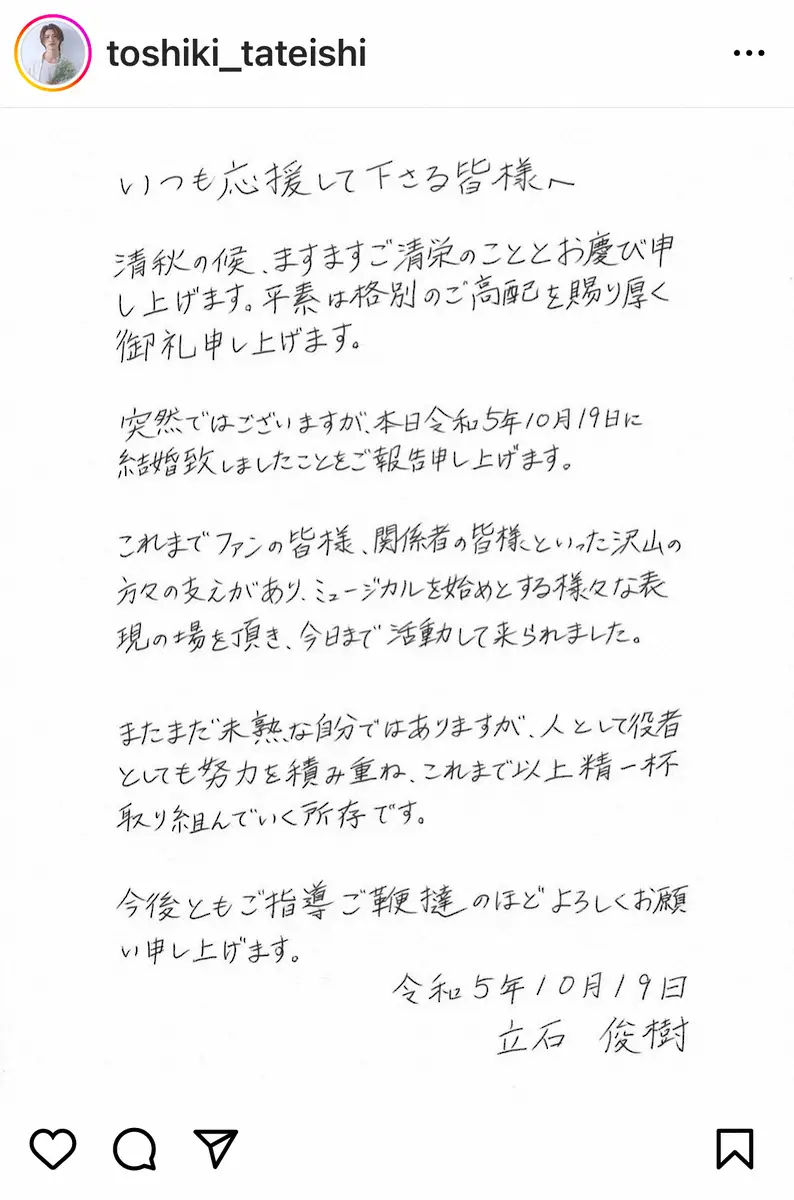 toshiki_tateishi
いつも応援して下さる皆様へ
清秋の候、ますますご清栄のこととお慶び申
し上げます。平素は格別のご高配を賜り厚く
御礼申し上げます。
突然ではございますが、本日令和5年10月19日に
結婚致しましたことをご報告申し上げます。
これまでファンの皆様、関係者の皆様といった沢山の
方々の支えがあり、ミュージカルを始めとする様々な表
現の場を頂き、今日まで活動して来られました。
まだまだ未熟な自分ではありますが、人として役者
としても努力を積み重ね、これまで以上精一杯
取り組んでいく所存です。
今後ともご指導ご鞭撻のほどよろしくお願
い申し上げます。
令和5年10月19日
立石 俊樹